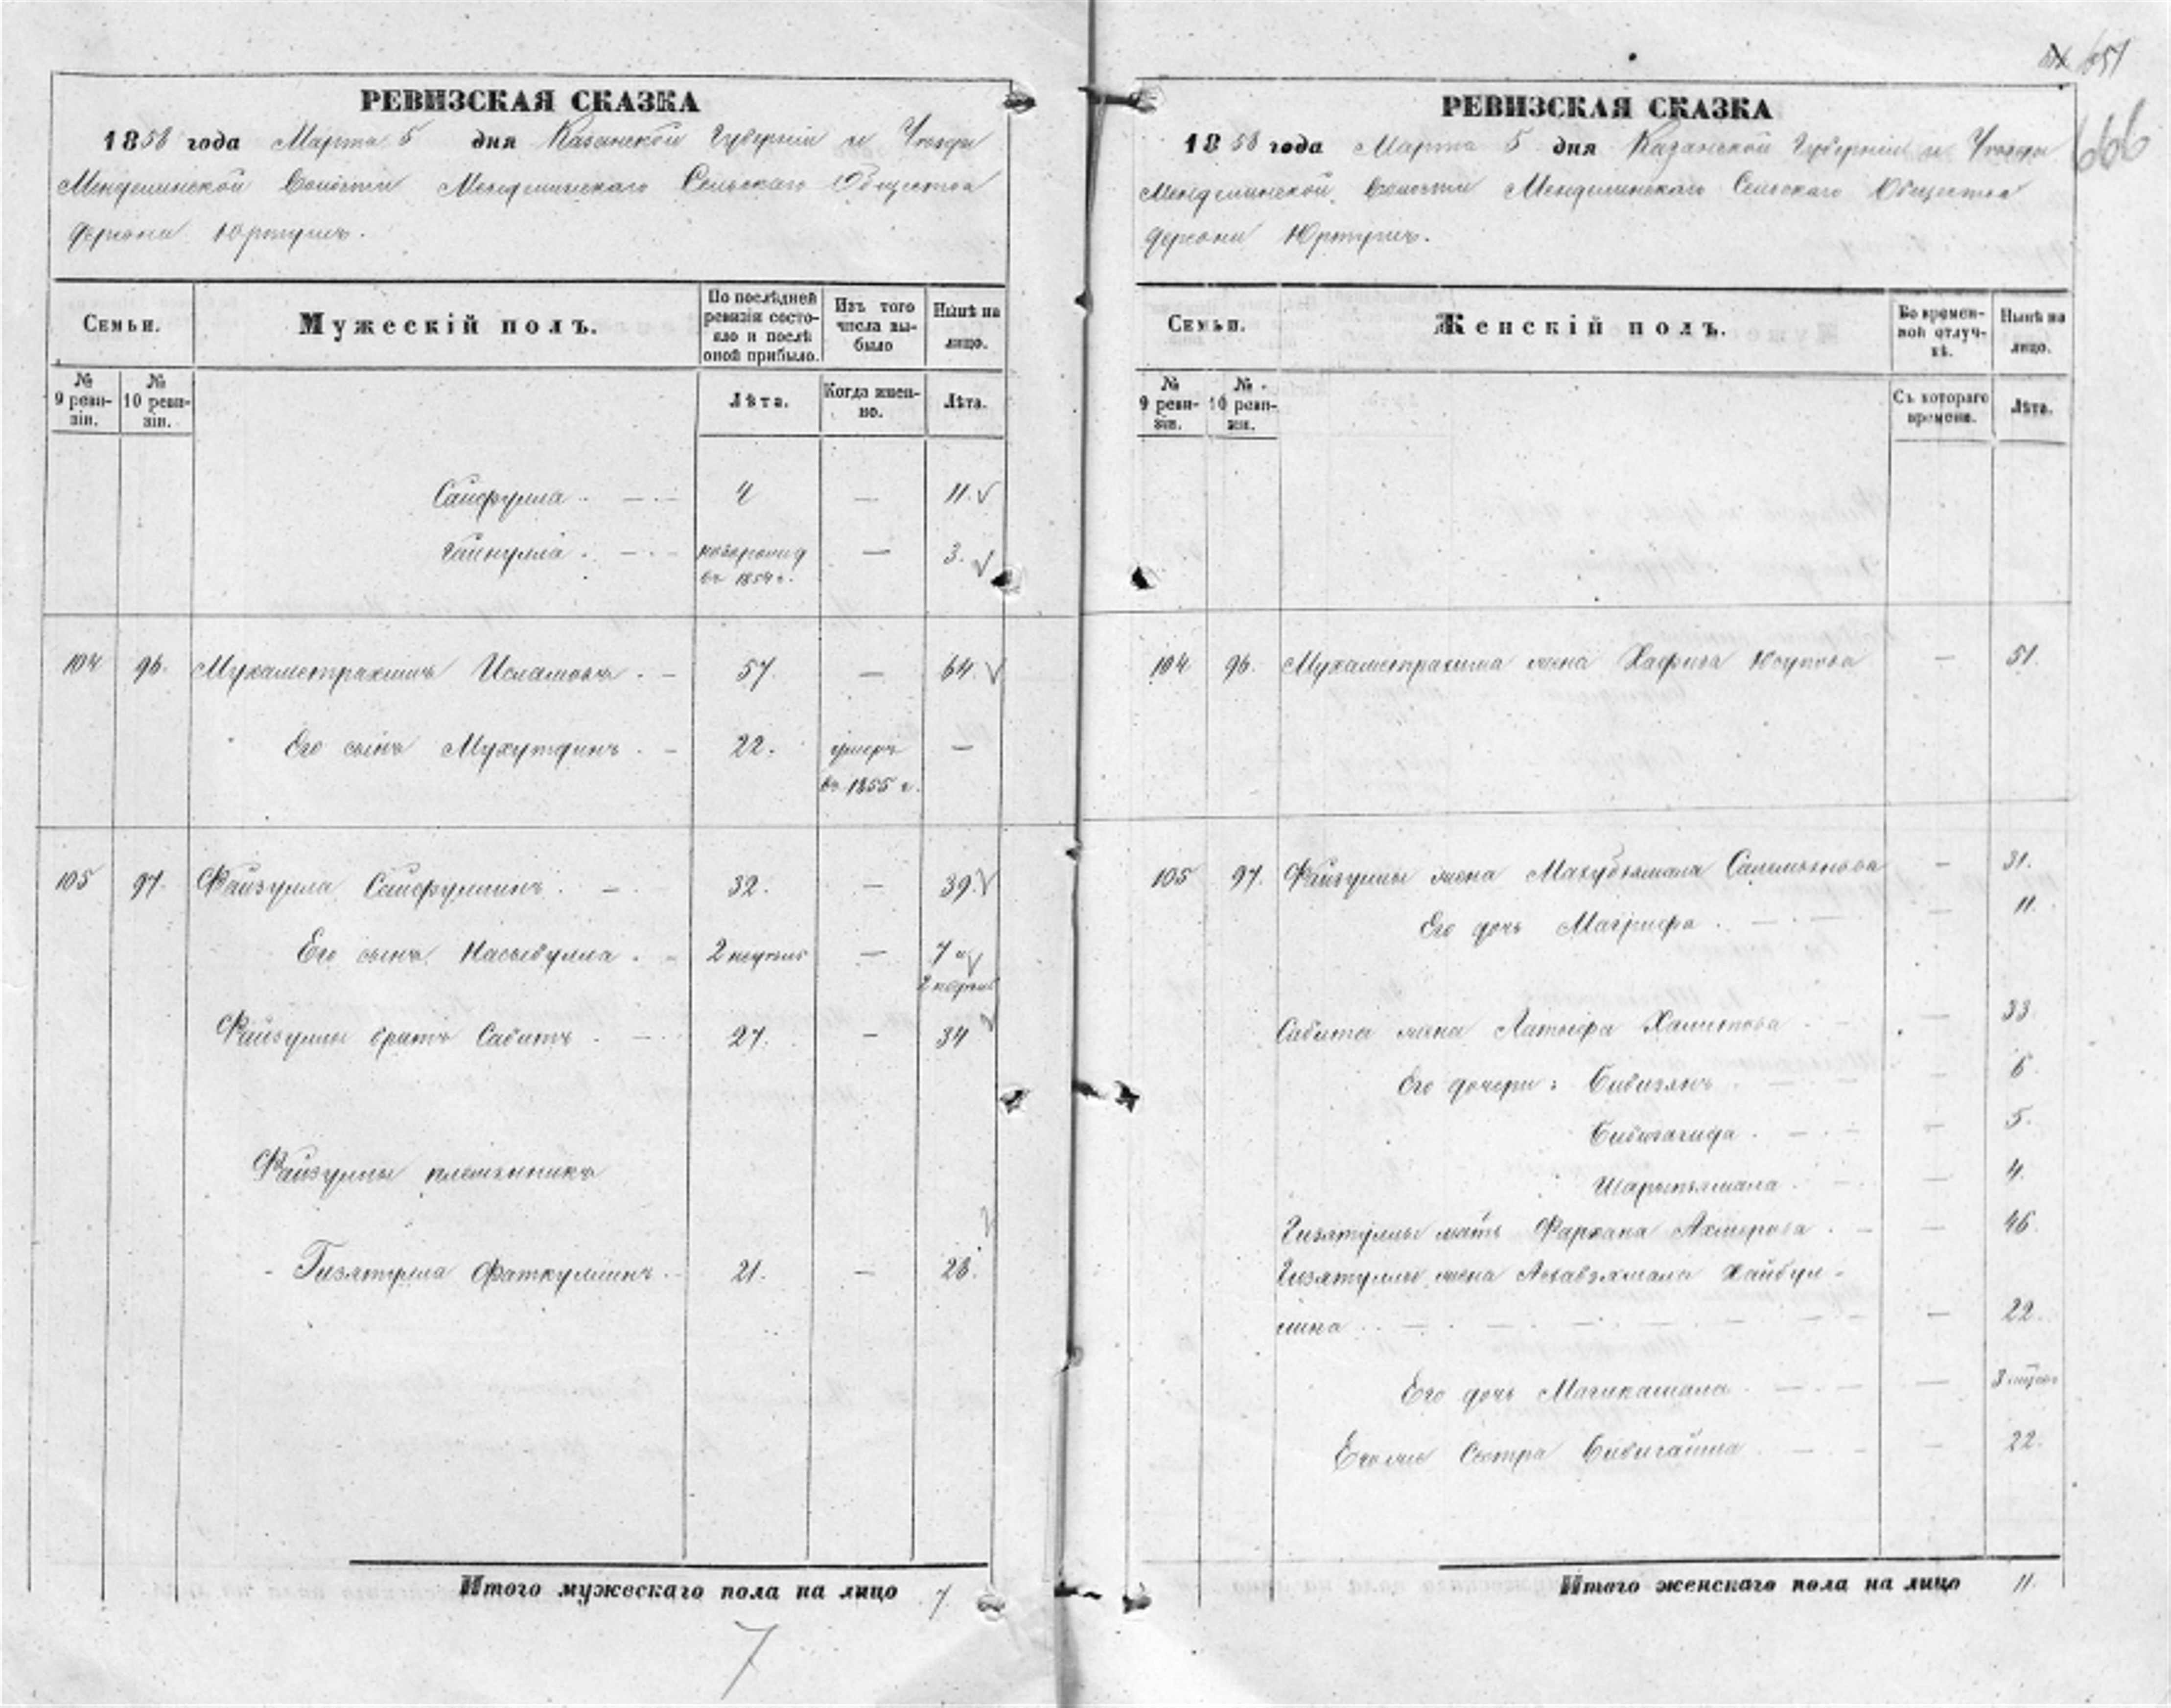 651
666
РЕВИЗСКАЯ СКАЗКА
1858 года Марта 5 дня Казанской Губерніи и Уезда
Менделинской Волости Менделинскаго Сельскаго Общества
деревни Юртушъ.
Семьи.
Мужескій полъ.
По послѣдней ревизіи состояло и послѣ оной прибыло.
Изъ того числа выбыло
Нынѣ на лицо.
№ 9 ревизіи.
№ 10 ревизіи.
Лѣта.
Когда именно.
Лѣта.
Сайфулла . — 4 — 11.
Гайнулла . — новорожд — 3.
въ 1854 г.
104 96. Мухаметрахимъ Исламовъ . — 57. — 64.
Его сынъ Мухутдинъ . — 22. умеръ —
въ 1855 г.
105 97. Файзулла Сайфуллинъ . — 32. — 39.
Его сынъ Насыбулла . — 2 недѣль — 7 и
2 недѣль
Файзуллы братъ Сабитъ . — 27. — 34
Файзуллы племянникъ
Гизятулла Фаткуллинъ . — 21. — 28.
Итого мужескаго пола на лицо 7
7
РЕВИЗСКАЯ СКАЗКА
1858 года Марта 5 дня Казанской Губерніи и Уезда
Менделинской Волости Менделинскаго Сельскаго Общества
деревни Юртушъ.
Семьи.
Женскій полъ.
Во временной отлучкѣ.
Нынѣ на лицо.
№ 9 ревизіи.
№ 10 ревизіи.
Съ котораго времени.
Лѣта.
104 96. Мухаметрахима жена Хафиза Юсупова — 51.
105 97. Файзуллы жена Махубзямала Салимьянова — 31.
Его дочь Магрифа . — 11.
Сабита жена Латыфа Халитова — 33.
Его дочери: Бибизянъ . — 6
Бибигагида . — 5.
Шарыпзямала . — 4.
Гизятуллы мать Фархана Ахмерова . — 46.
Гизятуллы жена Хайбул-
лина . — 22.
Его дочь Магикамала . — 3
Его же сестра Бибигайша — 22.
Итого женскаго пола на лицо 11.